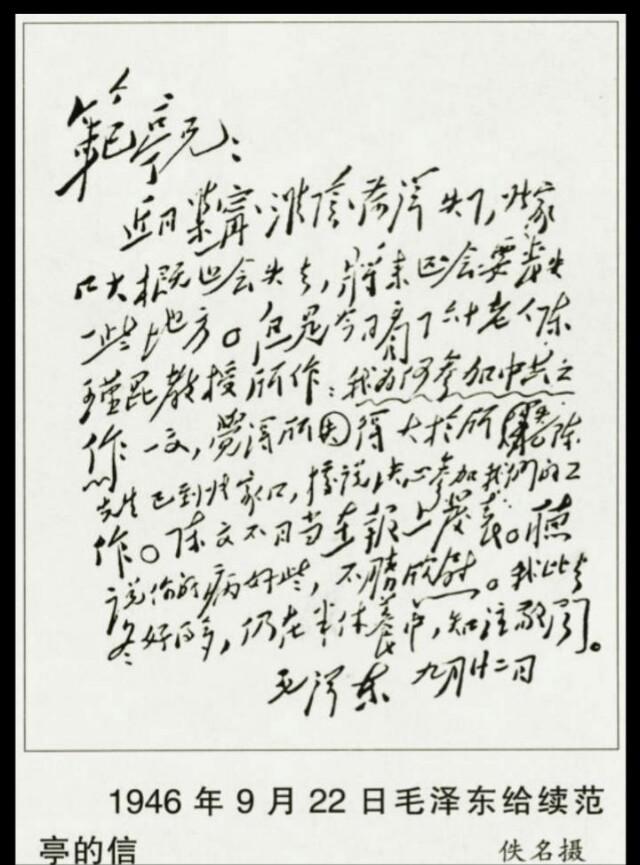 範亭兄：
近日集寧、淮陰、菏澤失了，张家
口大概也会失去，將来还会要丧失
一些地方。但是今日看了六十老人陈
瑾昆教授所作：我为何参加中共工
作 一文，覺得所得大於所丧。陈
先生已到张家口，據说决心参加我们的工
作。陈文不日当在報上發表。聽
说你的病好些，不勝欣慰。我比去
冬好的多，仍在半休養中，知注敬闻。
毛泽东 九月廿二日
1946 年 9 月 22 日毛泽东给续范
亭的信
佚名摄